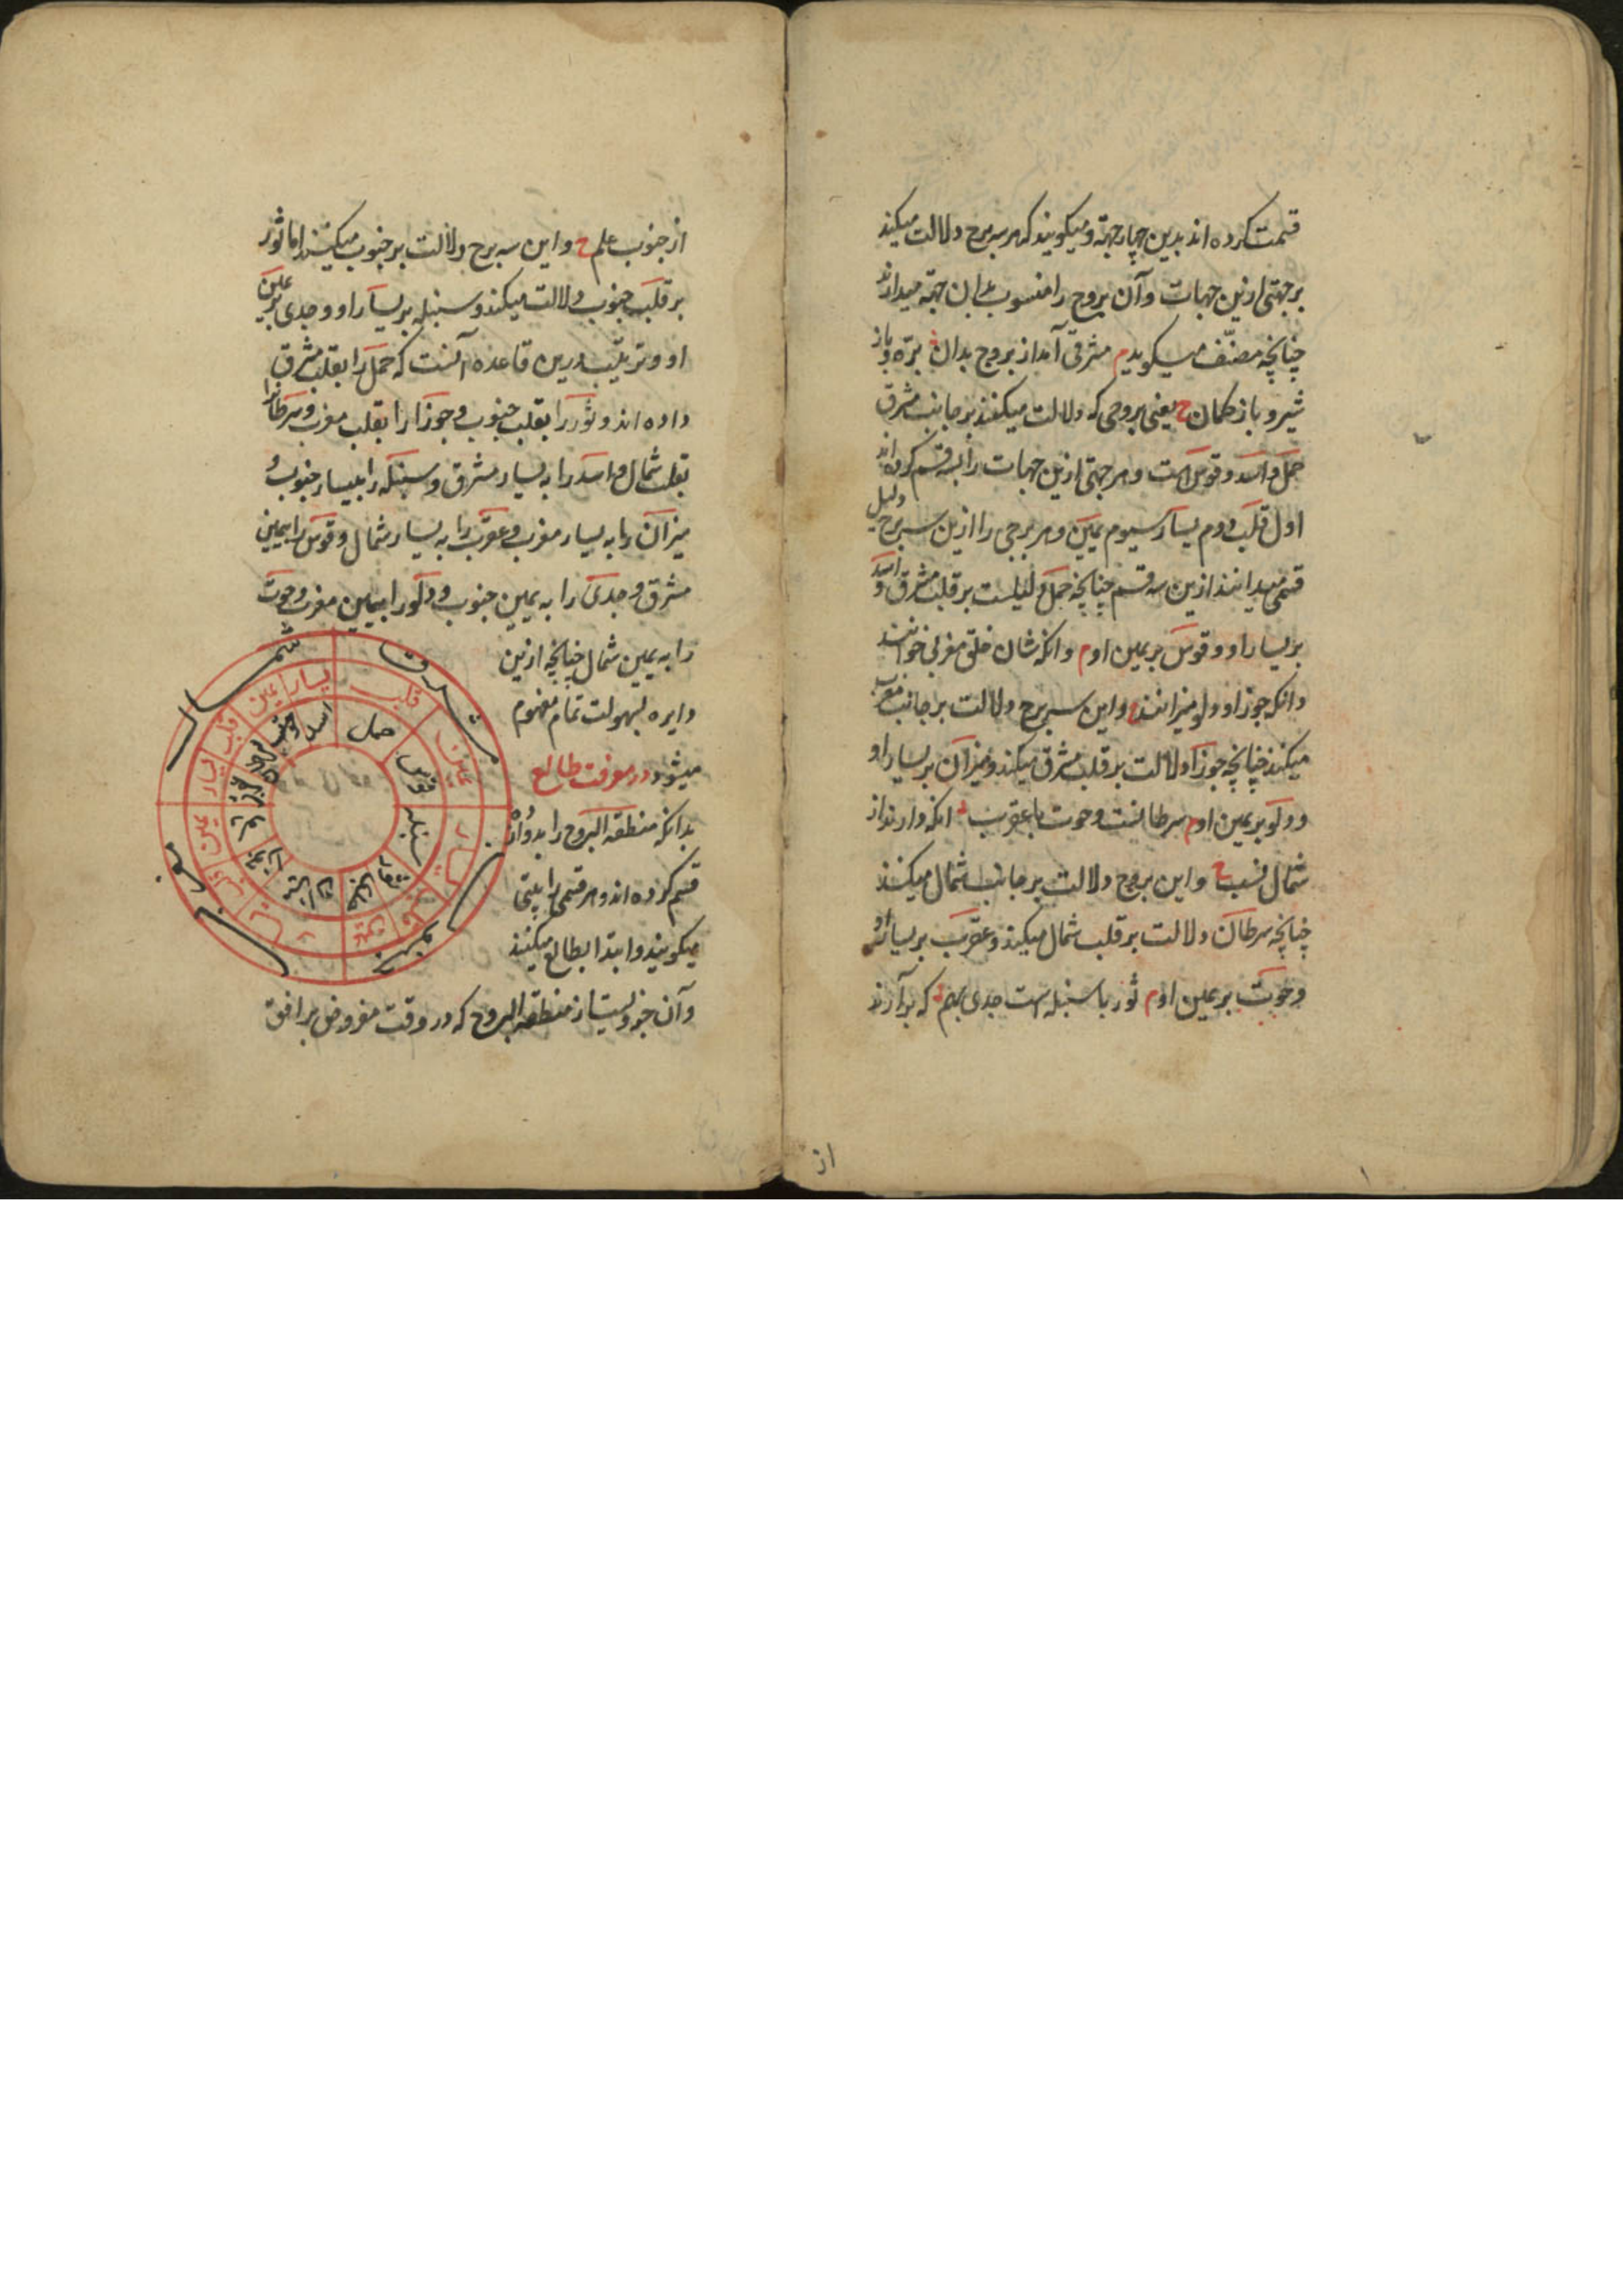 قسمت کرده اند بدین چهار جهة و میکویند که هر سه برج دلالت میکند
بر جهتی ازین جهات و آن بروج را منسوب بدان جهة میدارند
چنانچه مصنّف میکوید م مشرقی آمد از بروج بدان بره و باز
شیر و باز کمان ح یعنی بروجی که دلالت میکنند بر جانب مشرق
حمل و اسد و قوس است و هر جهتی ازین جهات را بسه قسم کرده اند
اول قلب دوم یسار سیوم یمین و هر برجی را ازین سه برج دلیل
قسمی میدانند ازین سه قسم چنانچه حمل دلیلست بر قلب مشرق و اسد
بر یسار او و قوس بر یمین او م وانکه شان خلق مغربی خوانند
دانکه جوزا و دلو میزانند ح و این سه برج دلالت بر جانب مغرب
میکنند چنانچه جوزا دلالت بر قلب مشرق میکند و میزان بر یسار او
و دلو بر یمین او م سرطانست و حوت با عقرب انکه دارند از
شمال نسب ح و این بروج دلالت بر جانب شمال میکنند
چنانچه سرطان دلالت بر قلب شمال میکند و عقرب بر یسار او
و حوت بر یمین او م ثور با سنبله است جدی بهم که برآرند
از
از جنوب علم ح و این سه برج دلالت بر جنوب میکنند اما ثور
بر قلب جنوب دلالت میکند و سنبله بر یسار او و جدی بر یمین
او و ترتیب درین قاعده آنست که حمل را بقلب مشرق
داده اند و ثور را بقلب جنوب و جوزا را بقلب مغرب و سرطانرا
بقلب شمال و اسد را به یسار مشرق و سنبله را بیسار جنوب و
میزان را به یسار مغرب و عقرب را به یسار شمال و قوس را بیمین
مشرق و جدی را به یمین جنوب و دلو را بیمین مغرب و حوت
را به یمین شمال چنانچه ازین
دایره بسهولت تمام مفهوم
میشود در معرفت طالع
بدانکه منطقة البروج را بدوازده
قسم کرده اند و هر قسمی را بیتی
میکویند و ابتدا بطالع میکنند
و آن جزویست از منطقة البروج که در وقت مفروض بر افق
شمال
مشرق
جنوب
مغرب
یسار
یمین
قلب
قلب
یمین
یسار
یمین
حمل
اسد
حوت
قوس
سنبله